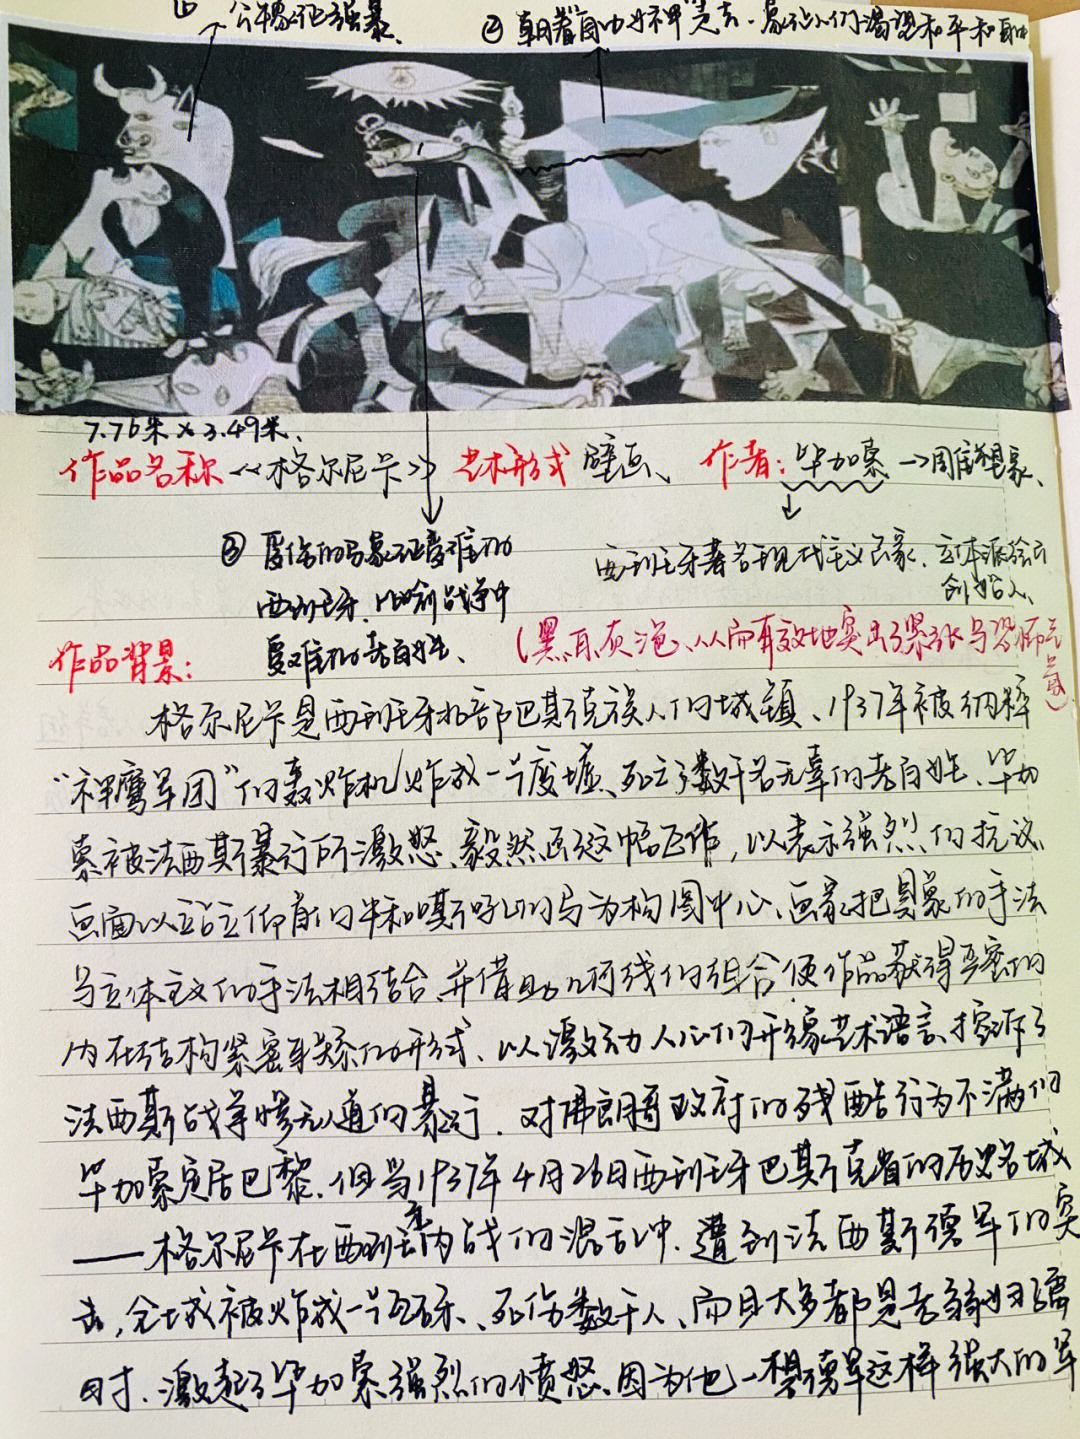 ① 公牛象征强暴、
② 朝着自由女神走去、象征人们渴望和平和自由
7.76米×3.49米、
作品名称《格尔尼卡》 艺术形式 壁画、 作者:毕加索→雕塑家、
③ 受伤的马象征受难的
西班牙、比喻战争中
受难的老百姓、
西班牙著名现代主义画家、立体派绘画
创始人、
(黑白灰三色、从而有效地突出了紧张与恐怖气氛)
作品背景:
格尔尼卡是西班牙北部巴斯克族人们的城镇、1937年被纳粹
“神鹰军团”的轰炸机炸成一片废墟、死亡了数千名无辜的老百姓、毕加
索被法西斯暴行所激怒、毅然画了这幅巨作,以表示强烈的抗议、
画面以站立仰首的牛和嘶吼的马为构图中心、画家把具象的手法
与立体主义的手法相结合、并借助几何线的组合使作品获得严密的
内在结构紧密联系的形式、以激动人心的形象艺术语言、控诉了
法西斯战争惨无人道的暴行、对弗朗哥政府的残酷行为不满的
毕加索定居巴黎、但当1937年4月26日西班牙巴斯克省的历史名城
——格尔尼卡在西班牙内战的混乱中、遭到法西斯德军的突
击,全城被炸成一片瓦砾、死伤数千人、而且大多都是老弱妇孺
时、激起了毕加索强烈的愤怒、因为他一想德军这样强大的军